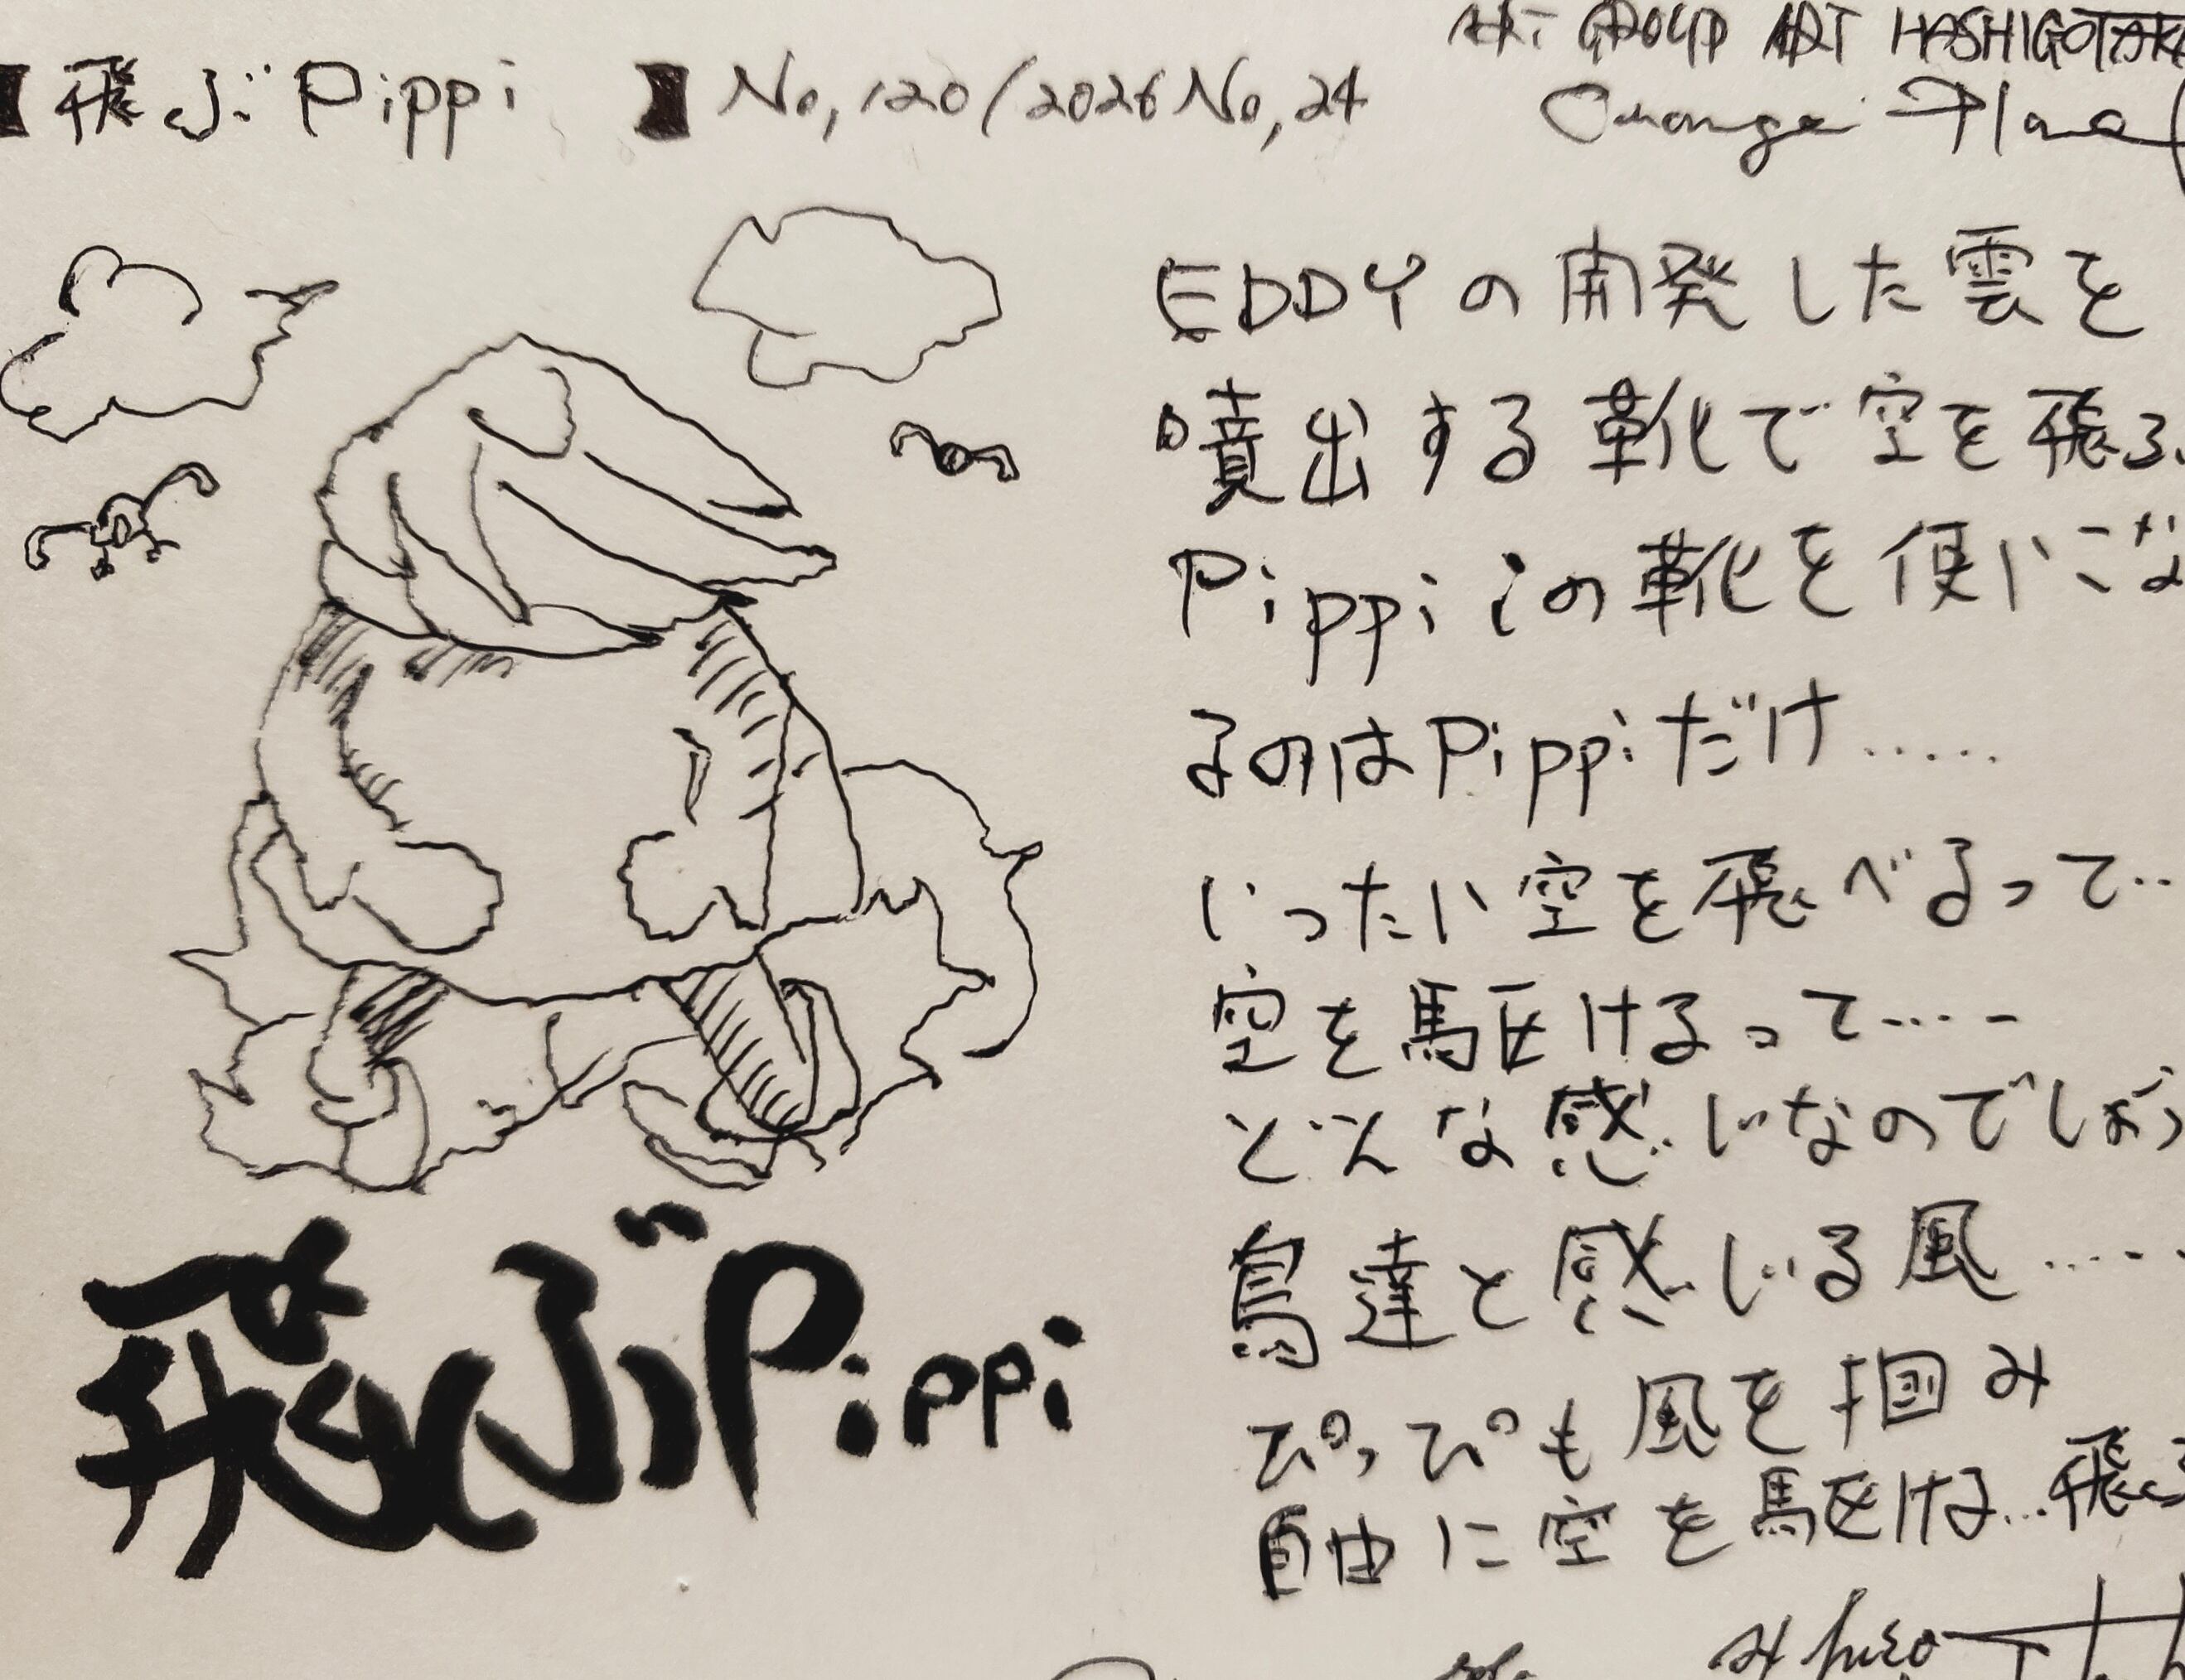 ■飛ぶPippi ■No,120/2026No,24
ART GROUP ART HASHIGOTAKA
Orange
EDDYの開発した雲を
噴出する靴で空を飛ぶ
Pippiこの靴を使いこな
るのはPippiだけ.....
いったい空を飛べるって..
空を駆けるって....
どんな感じなのでしょう
鳥達と感じる風.....
ぴっぴも風を掴み
自由に空を駆ける...飛ぶ
飛ぶPippi